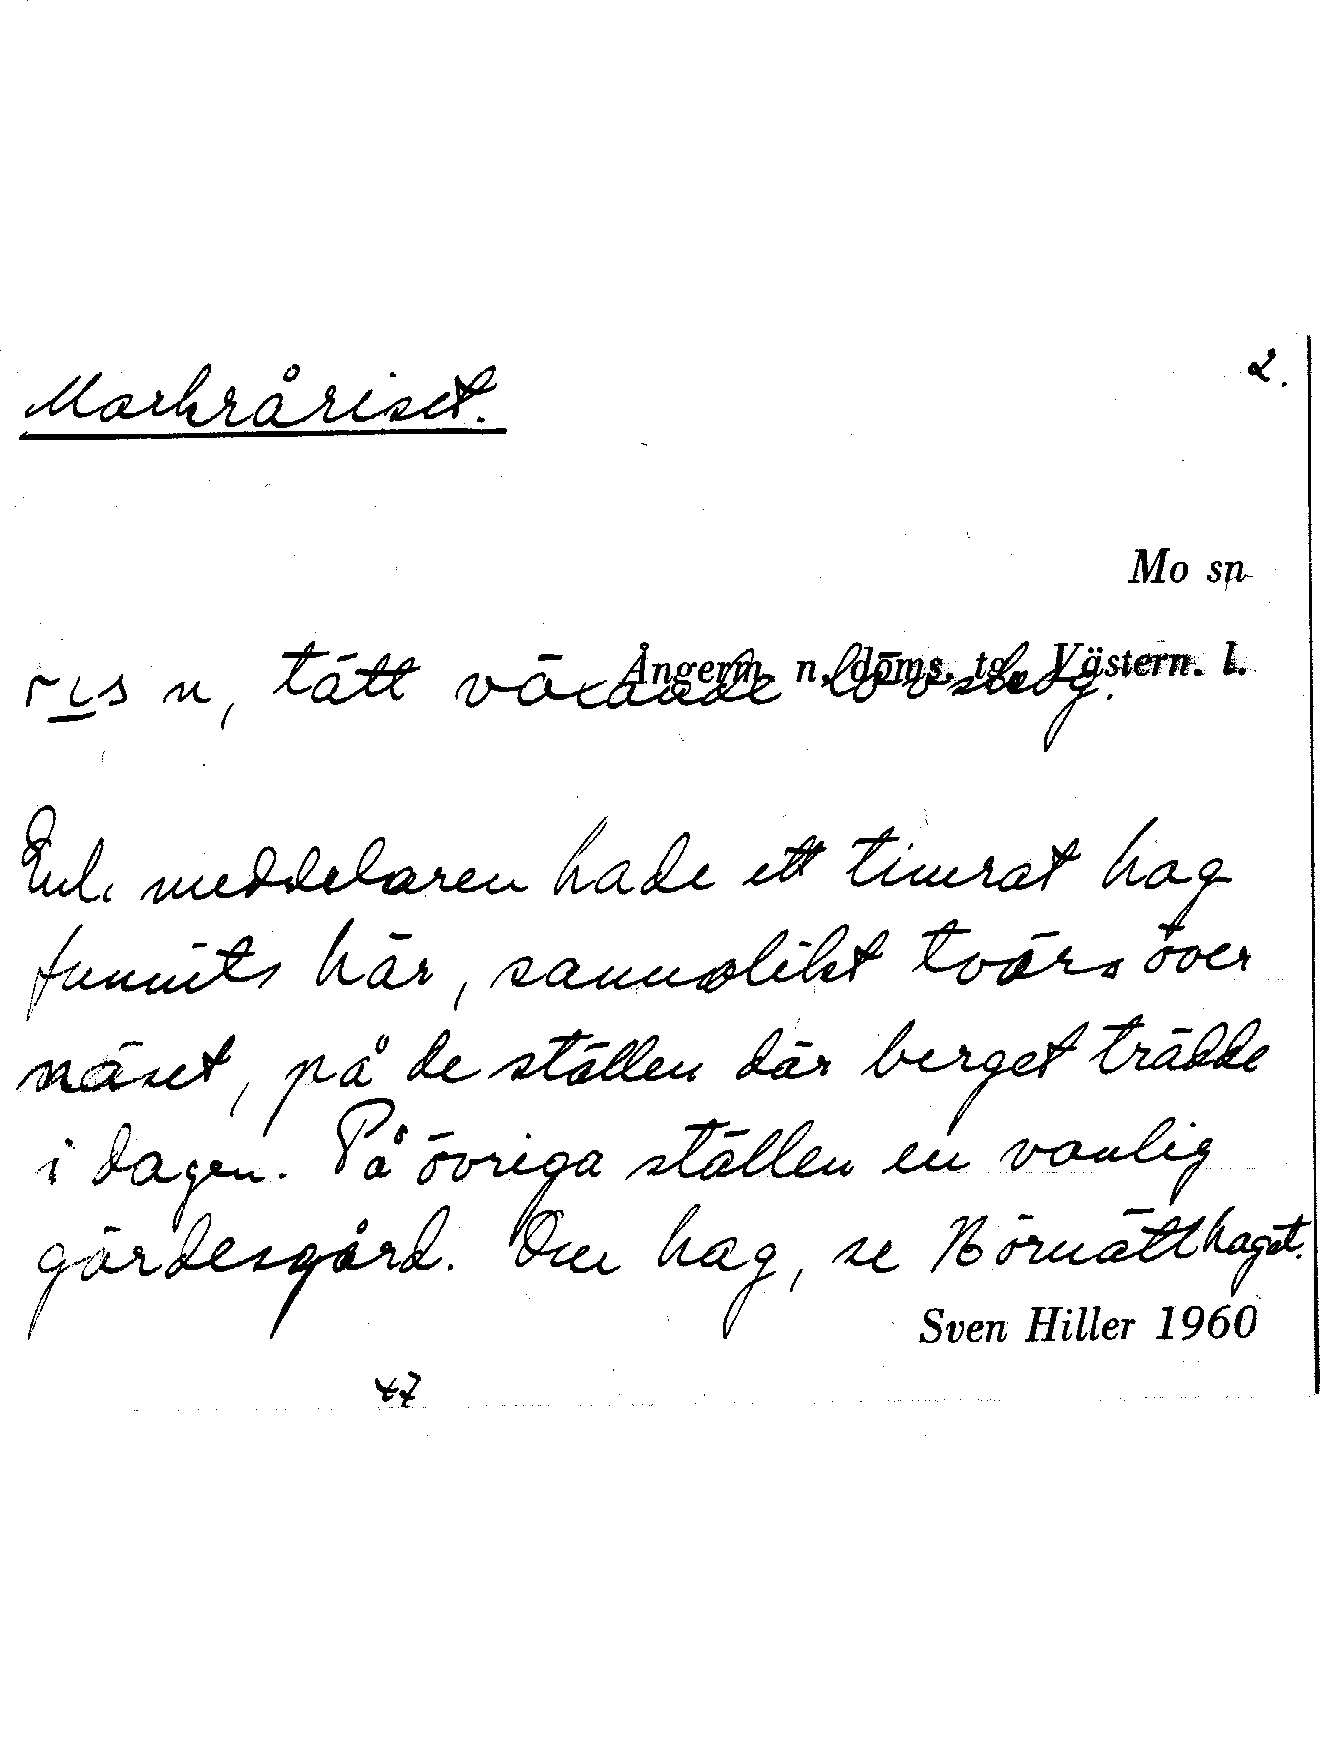 Markråriset.
2.
Mo sn
Ångerm. n. doms. tg. Västern. l.
ris n, tätt växande lövskog.
Enl. meddelaren hade ett timrat hag
funnits här, sannolikt tvärs över
näset, på de ställen där berget trädde
i dagen. På övriga ställen en vanlig
gärdesgård. Om hag, se Börnätthaget.
Sven Hiller 1960